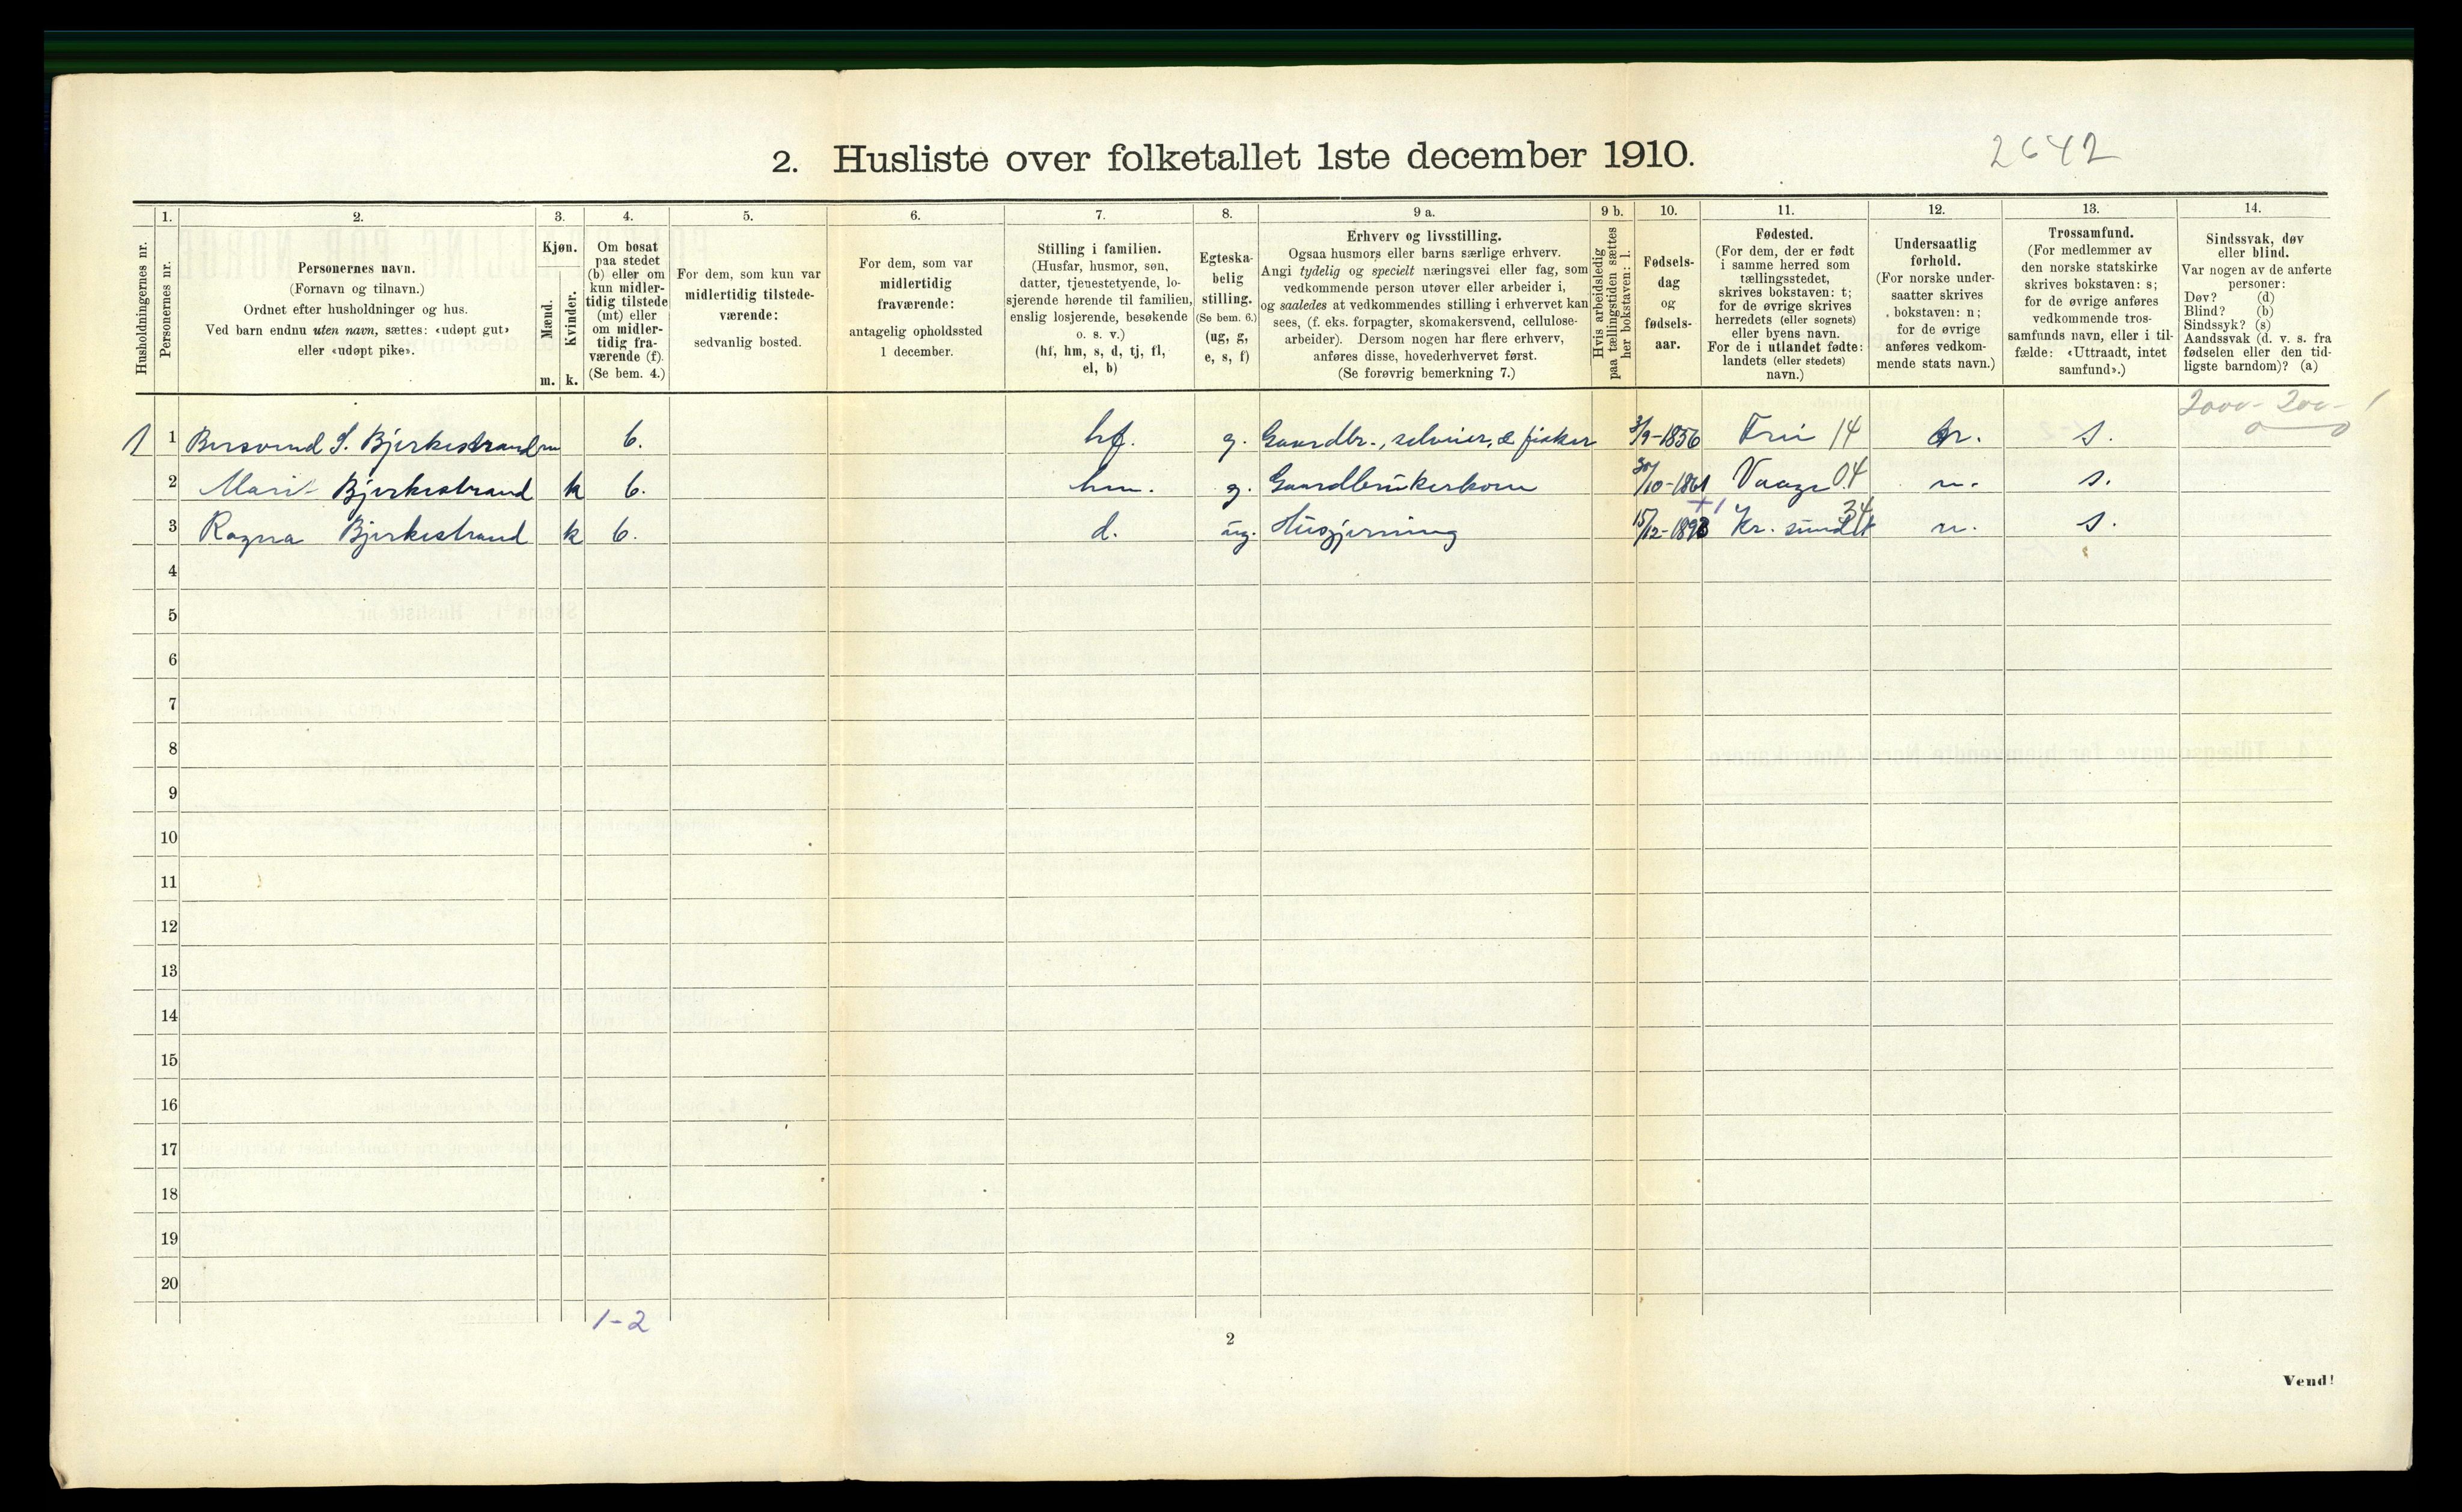 2. Husliste over folketallet 1ste december 1910.
2642
1. 2. 3. 4. 5. 6. 7. 8. 9 a. 9 b. 10. 11. 12. 13. 14.
Husholdningernes nr.
Personernes nr.
Personernes navn.
(Fornavn og tilnavn.)
Ordnet efter husholdninger og hus.
Ved barn endnu uten navn, sættes: «udøpt gut»
eller «udøpt pike».
Kjøn.
Mænd.
Kvinder.
m. k.
Om bosat
paa stedet
(b) eller om
kun midler-
tidig tilstede
(mt) eller
om midler-
tidig fra-
værende (f).
(Se bem. 4.)
For dem, som kun var
midlertidig tilstede-
værende:
sedvanlig bosted.
For dem, som var
midlertidig
fraværende:
antagelig opholdssted
1 december.
Stilling i familien.
(Husfar, husmor, søn,
datter, tjenestetyende, lo-
sjerende hørende til familien,
enslig losjerende, besøkende
o. s. v.)
(hf, hm, s, d, tj, fl,
el, b)
Egteska-
belig
stilling.
(Se bem. 6.)
(ug, g,
e, s, f)
Erhverv og livsstilling.
Ogsaa husmors eller barns særlige erhverv.
Angi tydelig og specielt næringsvei eller fag, som
vedkommende person utøver eller arbeider i,
og saaledes at vedkommendes stilling i erhvervet kan
sees, (f. eks. forpagter, skomakersvend, cellulose-
arbeider). Dersom nogen har flere erhverv,
anføres disse, hovederhvervet først.
(Se forøvrig bemerkning 7.)
Hvis arbeidsledig
paa tællingstiden sættes
her bokstaven: l.
Fødsels-
dag
og
fødsels-
aar.
Fødested.
(For dem, der er født
i samme herred som
tællingsstedet,
skrives bokstaven: t;
for de øvrige skrives
herredets (eller sognets)
eller byens navn.
For de i utlandet fødte:
landets (eller stedets)
navn.)
Undersaatlig
forhold.
(For norske under-
saatter skrives
bokstaven: n;
for de øvrige
anføres vedkom-
mende stats navn.)
Trossamfund.
(For medlemmer av
den norske statskirke
skrives bokstaven: s;
for de øvrige anføres
vedkommende tros-
samfunds navn, eller i til-
fælde: «Uttraadt, intet
samfund».)
Sindssvak, døv
eller blind.
Var nogen av de anførte
personer:
Døv? (d)
Blind? (b)
Sindssyk? (s)
Aandssvak (d. v. s. fra
fødselen eller den tid-
ligste barndom)? (a)
2000 - 200 - 1
0 0
1 1 Bersvend S. Bjerkestrand m b. hf. g. Gaardbr., selveier, & fisker 3/9-1856 Frei 14 n. s.
2 Marit Bjerkestrand k b. hm. g. Gaardbrukerkone 30/10-1861 Vaage 04 n. s.
3 Ragna Bjerkestrand k b. d. ug. Husgjerning 15/12-1893 Kr. sund 34 n. s.
4
5
6
7
8
9
10
11
12
13
14
15
16
17
18
19
20
1-2
2
Vend!